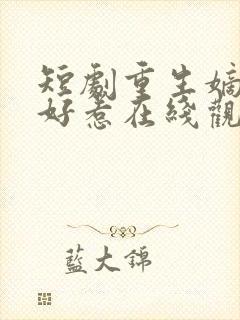 短劇重生嫡
好惹在綫觀
藍大錦